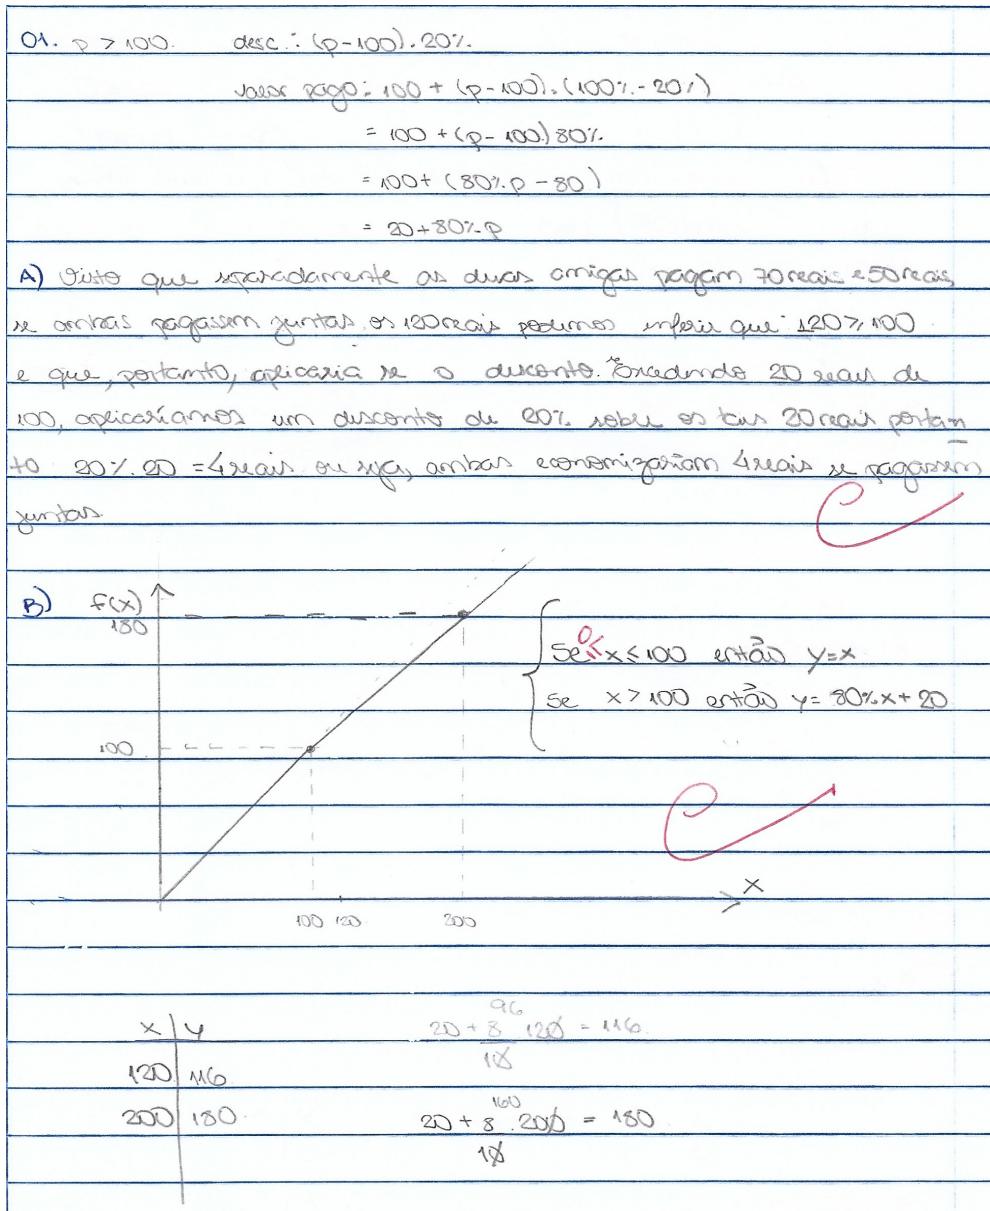 01. p > 100. desc.: (p-100).20%.
valor pago: 100 + (p-100).(100%-20%)
= 100 + (p-100)80%.
= 100+ (80%.p - 80)
= 20+80%.p
A) Visto que separadamente as duas amigas pagam 70 reais e 50 reais,
se ambas pagassem juntas os 120 reais podemos inferir que 120 ≥ 100
e que, portanto, aplicaria se o desconto. Excedendo 20 reais de
100, aplicaríamos um desconto de 20% sobre os tais 20 reais portan
to 20%.20 = 4 reais ou seja, ambas economizariam 4 reais se pagassem
juntas
B) f(x)
180
100
100 120 200
x
Se 0≤ x ≤ 100 então y=x
Se x > 100 então y= 80%x+20
x | y
120 | 116
200 | 180
96
20 + 8 120 = 116
10
160
20 + 8 . 200 = 180
10